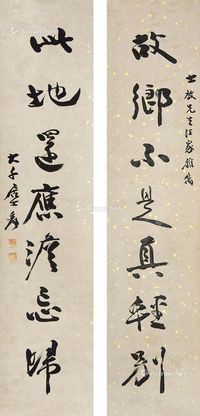 故鄉不是真輕別
先生法家雅屬
此地還應澹忘歸
大千居士爰